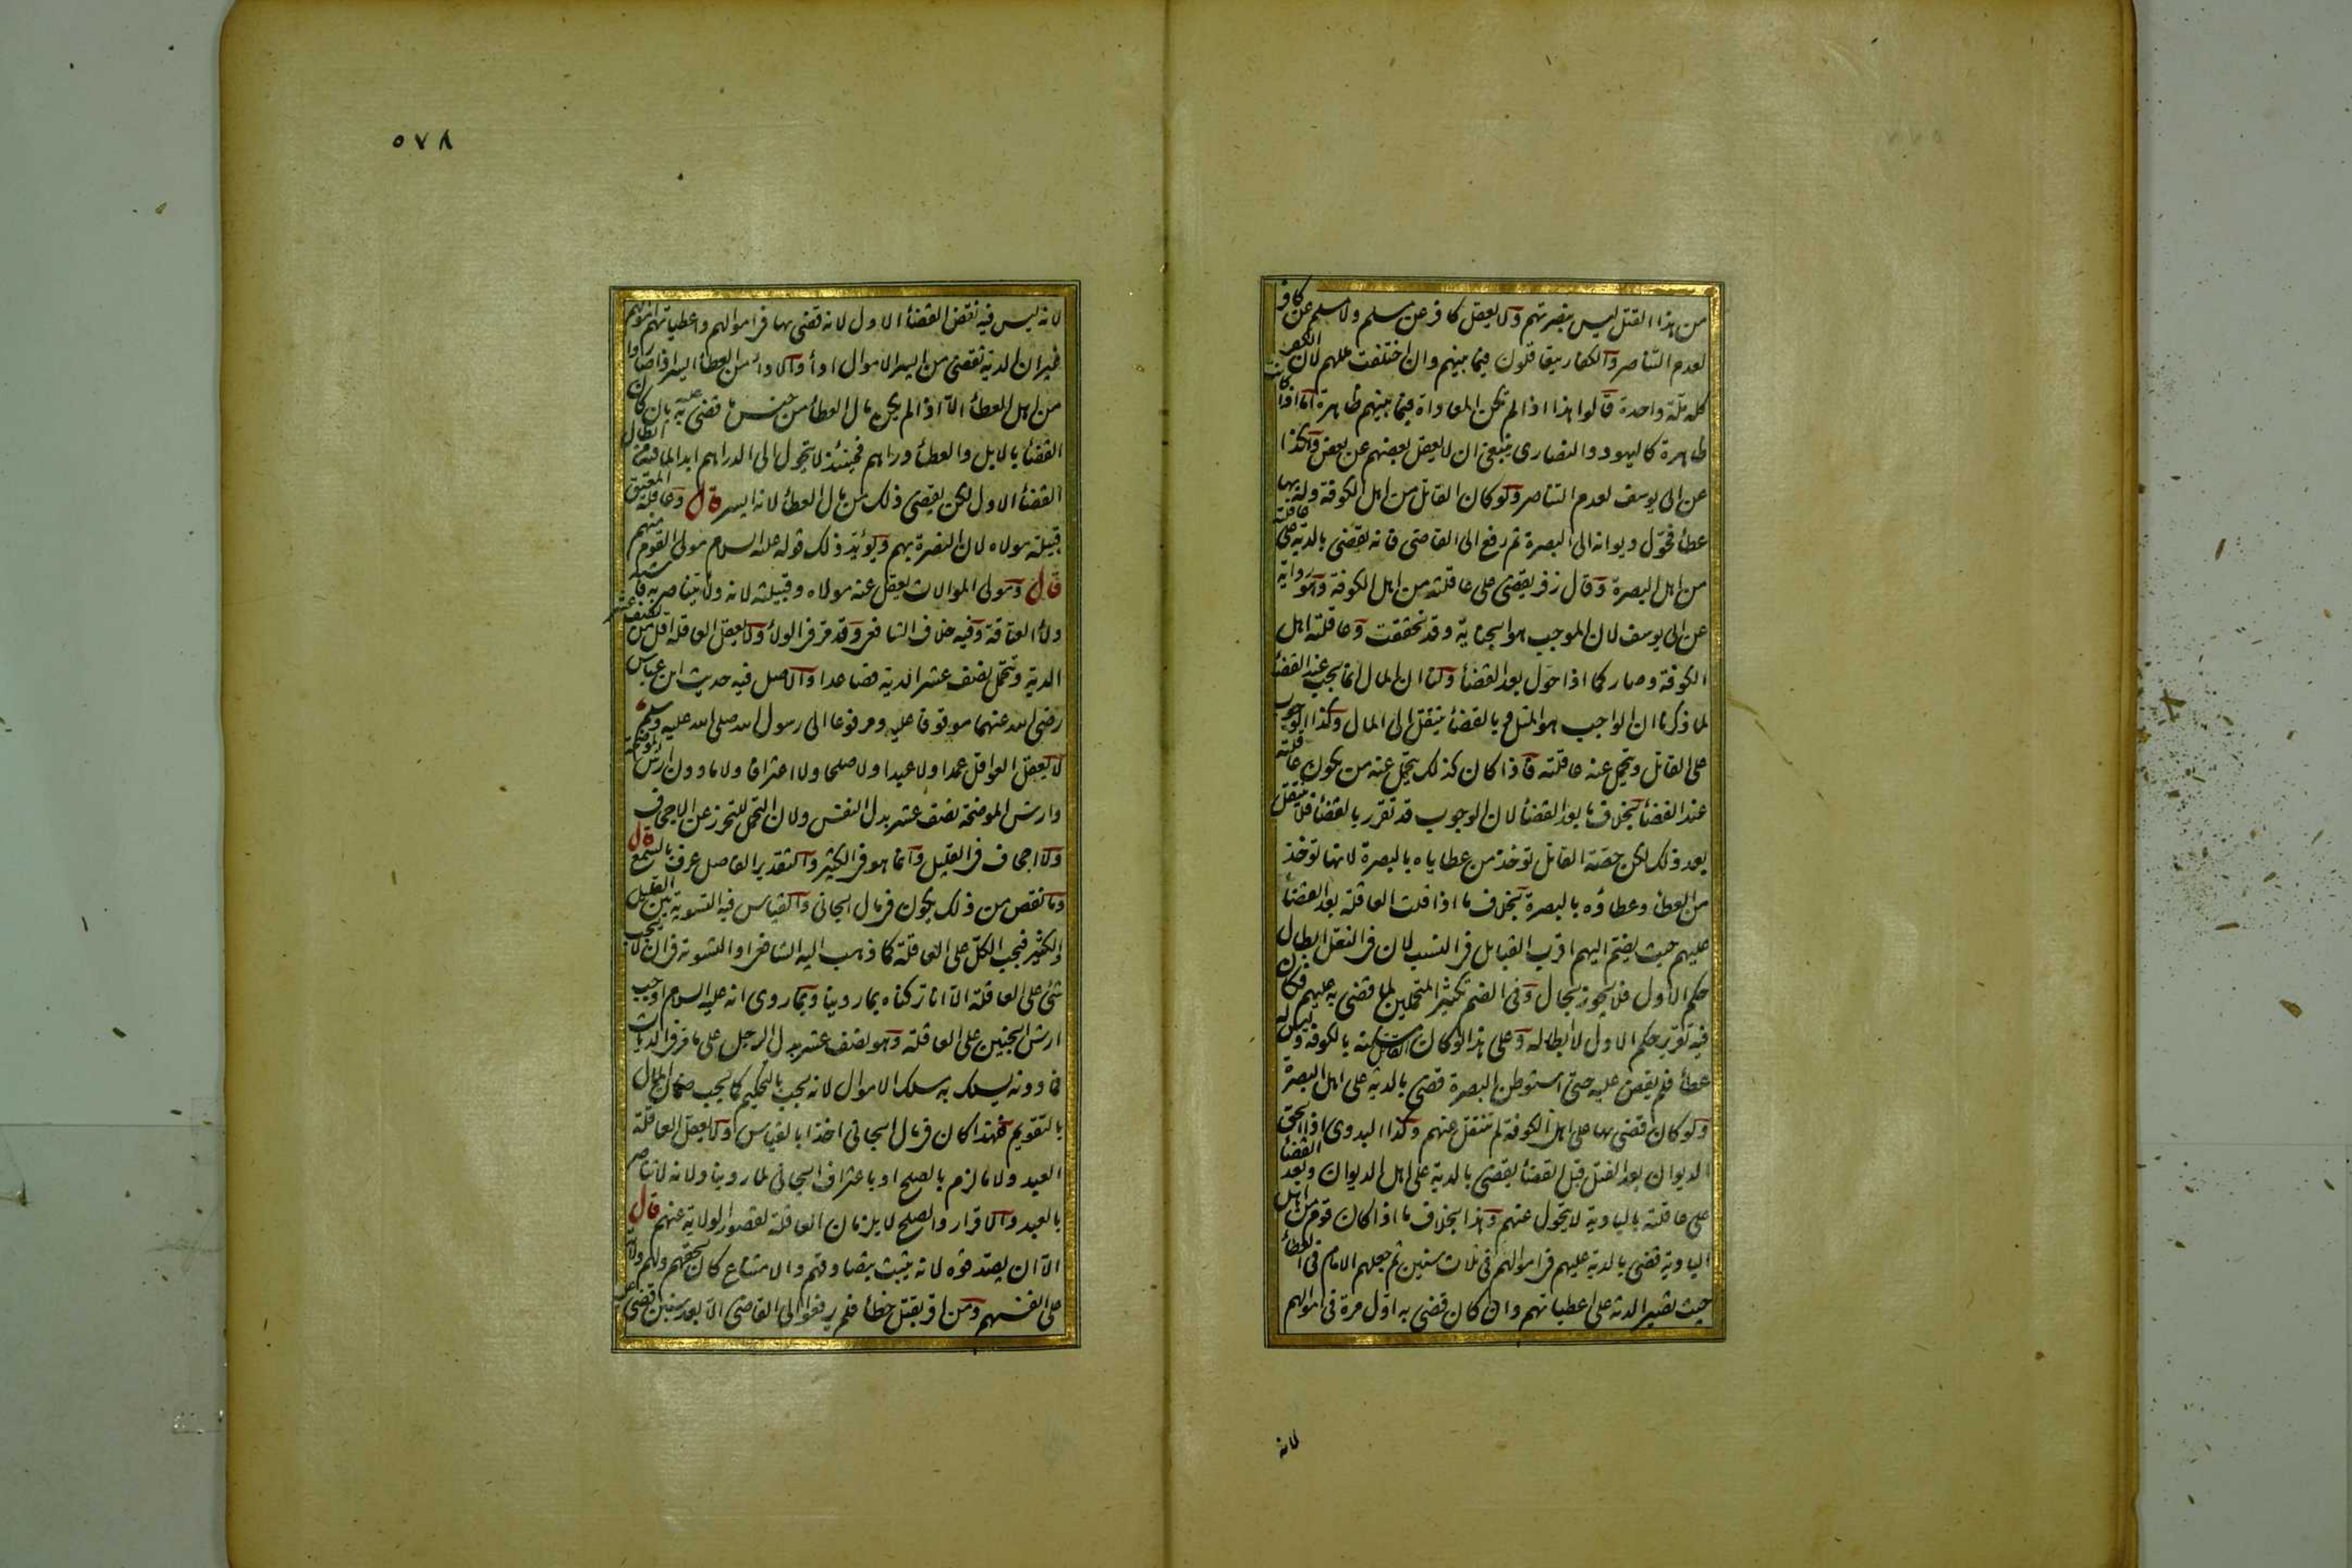 من هذا القتل ليس بنصرتهم ولا يعقل كافر عن مسلم ولا مسلم عن كافر
لعدم التناصر والكفار يتعاقلون فيما بينهم وان اختلفت مللهم لان الكفر
كله ملة واحدة قالوا هذا اذا لم تكن المعاداة فيما بينهم ظاهرة اما اذا كانت
ظاهرة كاليهود والنصارى ينبغي ان لا يعقل بعضهم عن بعض وهكذا
عن ابي يوسف لعدم التناصر ولو كان القاتل من اهل الكوفة وله بها
عطأ فحوّل ديوانه الى البصرة ثم رفع الى القاضي فانه يقضي بالدية على عاقلته
من اهل البصرة وقال زفر يقضي على عاقلته من اهل الكوفة وهو رواية
عن ابي يوسف لان الموجب هو الجناية وقد تحققت وعاقلته اهل
الكوفة وصار كما اذا حوّل بعد القضأ ولنا ان المال انما يجب عند القضأ
لما ذكرنا ان الواجب هو المثل وبالقضأ ينتقل الى المال وكذا الوجوب
على القاتل ويتحمل عنه عاقلته فاذا كان كذلك يتحمل عنه من يكون عاقلته
عند القضأ بخلاف ما بعد القضأ لان الوجوب قد تقرر بالقضأ فلا ينتقل
بعد ذلك لكن حصّة القاتل توخذ من عطاياه بالبصرة لانها توخذ
من العطأ وعطاؤه بالبصرة بخلاف ما اذا قلت العاقلة بعد القضأ
عليهم حيث يضمّ اليهم اقرب القبايل في النسب لان في النقل ابطال
حكم الاول فلا يجوز بحال وفي الضم تكثير المتحملين لما قضى به عليهم فكان
فيه تقرير حكم الاول لا ابطاله وعلى هذا لو كان القاتل مسكنه بالكوفة وليس له
عطأ فلم يقض عليه حتى استوطن البصرة قضى بالدية على اهل البصرة
ولو كان قضى بها على اهل الكوفة لم تنتقل عنهم وكذا البدوي اذا التحق
الديوان بعد القتل قبل القضأ يقضي بالدية على اهل الديوان وبعد القضأ
على عاقلته بالبادية لا يتحول عنهم وهذا بخلاف ما اذا كان قوم من اهل
البادية قضى بالدية عليهم في اموالهم في ثلاث سنين ثم جعلهم الامام في العطأ
حيث تصير الدية على اعطياتهم وان كان قضى به اول مرة في اموالهم
لانه
٥٧٨
لانه ليس فيه نقض القضأ الاول لانه قضى بها في اموالهم واعطياتهم اموالهم
غير ان الدية تقضى من ايسر الاموال ادأ والادأ من العطأ ايسر اذا صاروا
من اهل العطأ الا اذا لم يكن مال العطأ من جنس ما قضى به عليه بان كان
القضأ بالابل والعطأ دراهم فحينئذ لا يتحول الى الدراهم ابدا لما فيه من ابطال
القضأ الاول لكن يقضي ذلك من مال العطأ لانه ايسر قال وعاقلة المعتق
قبيلة مولاه لان النصرة بهم ويؤيّد ذلك قوله عليه السلام مولى القوم منهم
قال ومولى الموالات يعقل عنه مولاه وقبيلته لانه ولأ يتناصر به فاشبه
ولأ العتاقة وفيه خلاف الشافعي وقد مر في الولأ ولا يعقل العاقلة اقل من نصف عشر
الدية وتتحمل نصف عشر الدية فصاعدا والاصل فيه حديث ابن عباس
رضي الله عنهما موقوفا عليه ومرفوعا الى رسول الله صلى الله عليه وسلم
لا يعقل العواقل عمدا ولا عبدا ولا صلحا ولا اعترافا ولا ما دون ارش الموضحة
وارش الموضحة نصف عشر بدل النفس ولان التحمل للتحرز عن الاجحاف
ولا اجحاف في القليل وانما هو في الكثير والتقدير الفاصل عرف بالسمع قال
وما نقص من ذلك يكون في مال الجاني والقياس فيه التسوية بين القليل
والكثير فيجب الكلّ على العاقلة كما ذهب اليه الشافعي او التسوية في ان لا يجب
شئ على العاقلة الا انا تركناه بما روينا وبما روى انه عليه السلام اوجب
ارش الجنين على العاقلة وهو نصف عشر بدل الرجل على ما مر في الديات
فما دونه يسلك به مسلك الاموال لانه يجب بالتحكيم كما يجب ضمان المال
بالتقويم فلهذا كان في مال الجاني اخذا بالقياس ولا يعقل العاقلة
العبد ولا ما لزم بالصلح او باعتراف الجاني لما روينا ولانه لا تناصر
بالعبد والاقرار والصلح لا يلزمان العاقلة لقصور الولاية عنهم قال
الا ان يصدقوه لانه يثبت بتصادقهم والامتناع كان لحقهم ولهم ولاية
على انفسهم ومن اقر بقتل خطأ فلم يرفعوا الى القاضي الا بعد سنين قضى عليه